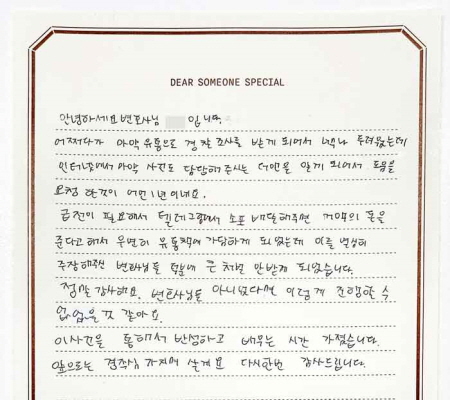 DEAR SOMEONE SPECIAL
안녕하세요 변호사님 입니다.
어쩌다가 마약 유통으로 경찰 조사를 받게 되어서 너무나 두려웠는데
인터넷에서 마약 사건도 담당해주시는 더앤을 알게 되어서 도움을
요청 한것이 어언 1년이네요.
급전이 필요해서 텔레그램에서 소포 배달해주면 거액의 돈을
준다고 해서 우연히 유통책에 가담하게 되었는데 이를 열심히
주장해주신 변호사님들 덕분에 큰 처벌 안받게 되었습니다.
정말 감사해요. 변호사님들 아니었다면 이렇게 진행할 수
없었을 것 같아요.
이사건을 통해서 반성하고 배우는 시간 가졌습니다.
앞으로는 경각심 가지며 살게요 다시한번 감사드립니다.